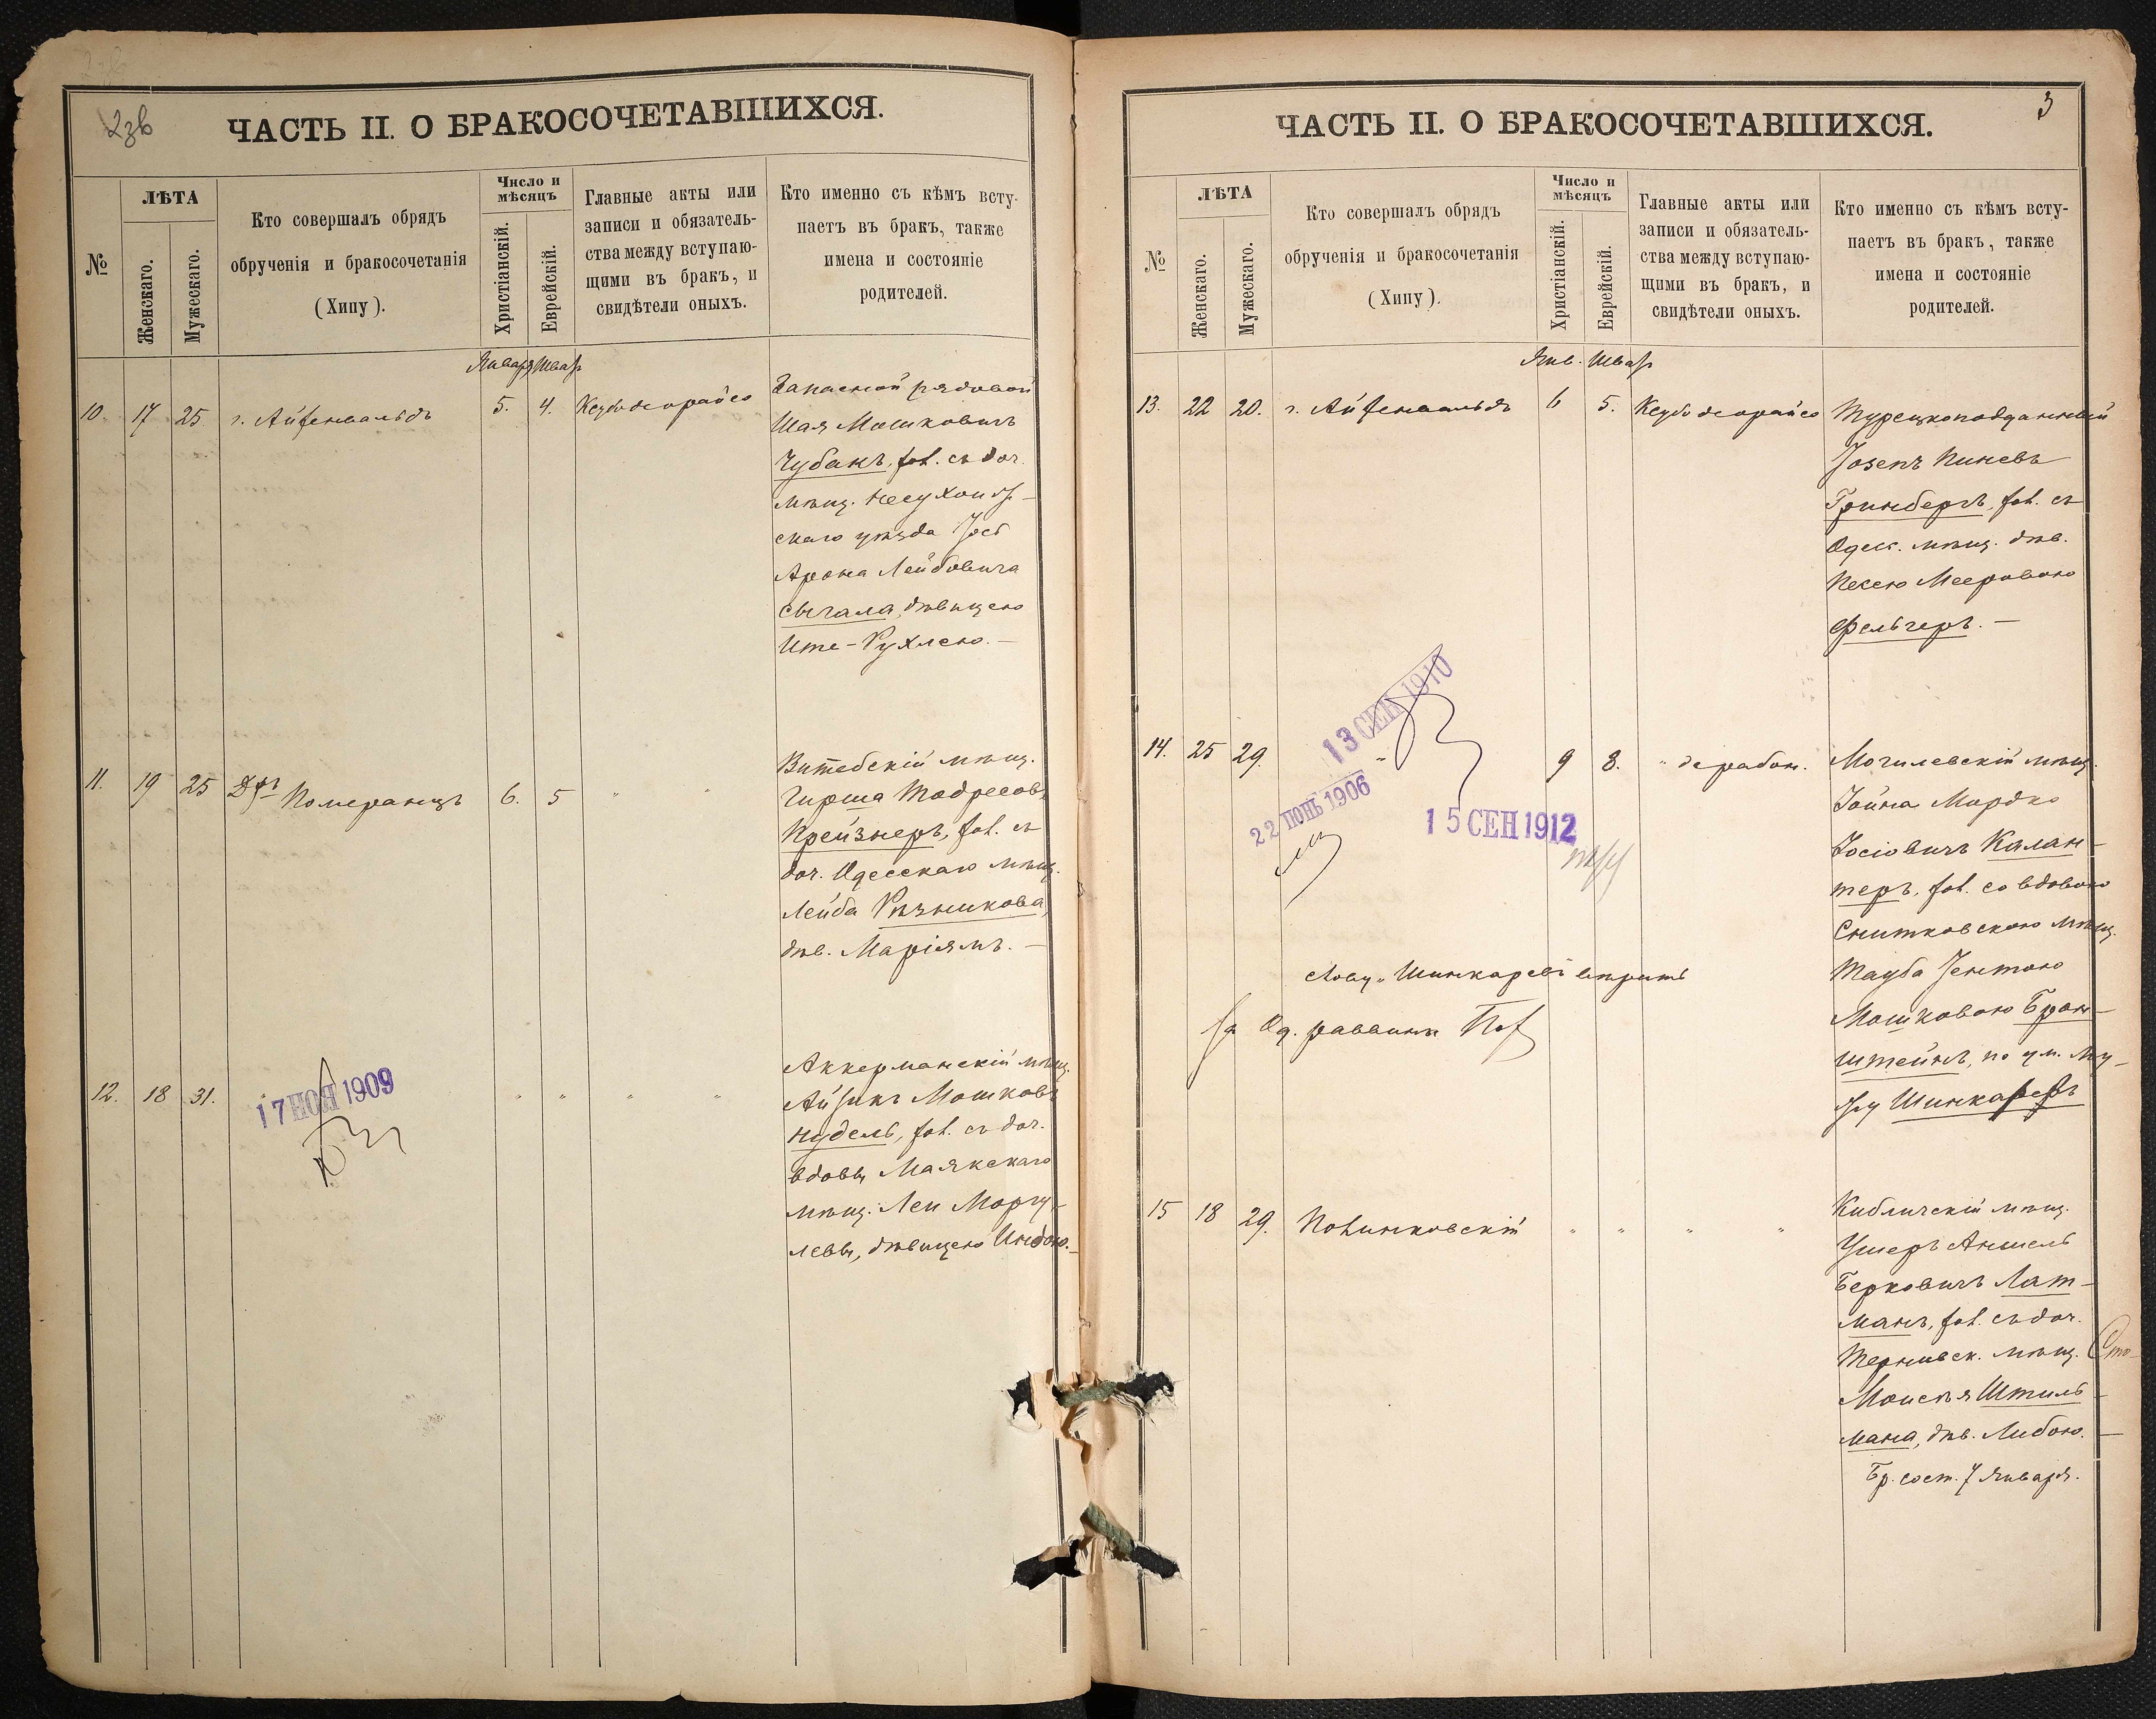 ЧАСТЬ II. О БРАКОСОЧЕТАВШИХСЯ.
№
ЛѢТА
Женскаго.
Мужескаго.
Кто совершалъ обрядъ
обрученія и бракосочетанія
(Хипу).
Число и
мѣсяцъ
Христіанскій.
Еврейскій.
Главные акты или
записи и обязатель-
ства между вступаю-
щими въ бракъ, и
свидѣтели оныхъ.
Кто именно съ кѣмъ всту-
паетъ въ бракъ, также
имена и состояніе
родителей.
Января Шват
10. 17 25 г. Айзенвальдъ 5. 4. Ксубо деорайсо
Запасной рядовой
Шая Мошковичъ
Чубакъ, хол. съ доч.
мѣщ.
скаго уѣзда Іос
Арона Лейбовича
Сычала, дѣвицею
Ите-Рухлею. —
11. 19 25 Померанцъ 6. 5 " "
Витебскій мѣщ.
Гирша Тодресовъ
Крейзнеръ, хол. съ
доч. Одесскаго мѣщ.
Лейба Рѣзникова,
дѣв. Маріямъ. —
12. 18 31. " " " " "
17 НОЯ 1909
Аккерманскій мѣщ.
Айзикъ Мошковъ
Нудель, хол. съ доч.
вдовы Маякскаго
мѣщ. Леи Маргу-
левы, дѣвицею Индою. —
ЧАСТЬ II. О БРАКОСОЧЕТАВШИХСЯ.
3
№
ЛѢТА
Женскаго.
Мужескаго.
Кто совершалъ обрядъ
обрученія и бракосочетанія
(Хипу).
Число и
мѣсяцъ
Христіанскій.
Еврейскій.
Главные акты или
записи и обязатель-
ства между вступаю-
щими въ бракъ, и
свидѣтели оныхъ.
Кто именно съ кѣмъ всту-
паетъ въ бракъ, также
имена и состояніе
родителей.
Янв. Шват
13. 22 20. г. Айзенвальдъ 6 5. Ксубо деорайсо
Турецкоподданный
Іозепъ Пиневъ
Гринбергъ, хол. съ
Одесс. мѣщ. дѣв.
Песею Мееровою
Фельчеръ. —
14. 25 29. " 9 8. " дерабон.
13 СЕН 1910
22 ІЮНЬ 1906
15 СЕН 1912
Могилевскій мѣщ.
Іойна Мордко
Іосіовичъ Калан-
теръ, хол. со вдовою
Снитковскою мѣщ.
Тауба Іентою
Мошковою Брон-
штейнъ, по ум. му-
жу Шинкаревъ
Слову "Шинкаревъ" вѣрить
Од. раввинъ
15 18 29. Полинковскій " " " "
Кибличскій мѣщ.
Ушеръ Аншель
Берковичъ Лат-
манъ, хол. съ доч.
Терновск. мѣщ.
Моисея Штиль-
мана, дѣв. Либою. —
Бр. сост. 7 Января.